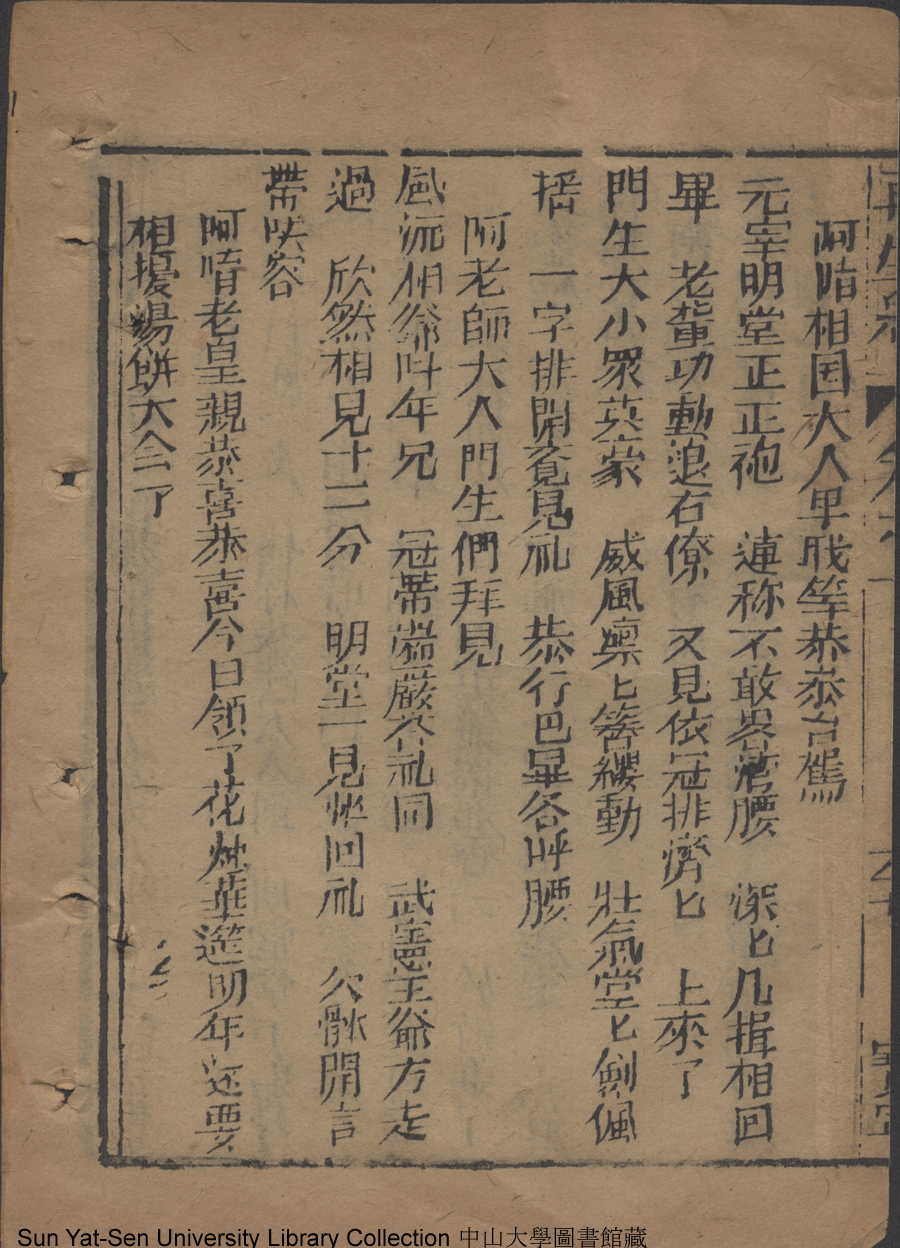 阿唷相国大人里我等恭恭台駕
元宰明堂正正袍　連称不敢畧湾腰　深匕几揖相回
畢　老輩功動退右僚　又見依冠排濟匕　上來了
門生大小眾英豪　威風凛匕簪纓動　壯氣堂匕劍佩
搖　一字排開叅見礼　恭行巴畢各呼腰
阿老師大人門生們拜見
風流相爺叫年兄　冠帶端嚴荅礼同　武憲王爺方走
過　欣然相見十二分　明堂一見忙回礼　欠躰開言
帶笑容
阿唷老皇親恭喜恭喜今日領了花燭華筵明年还要
相擾湯餅大会了
Sun Yat-Sen University Library Collection 中山大學圖書館藏